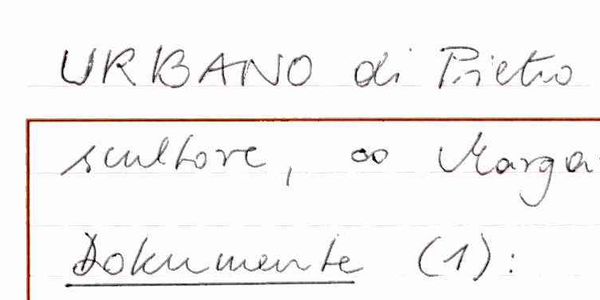 URBANO di Pietro
scultore, ∞ Marga
Dokumente (1):